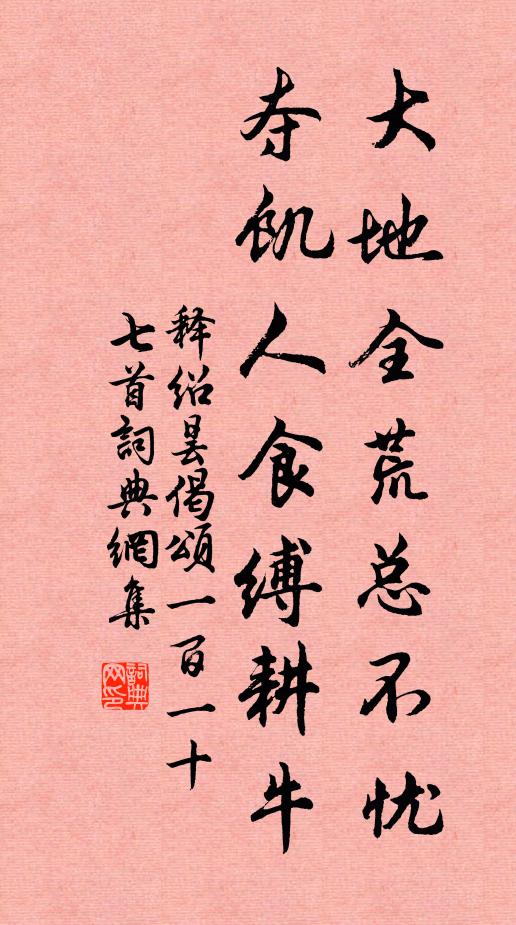 大地全荒总不忧
夺飢人食缚耕牛
释绍昙偈颂一百一十
七首詞典網集
詞典
网印